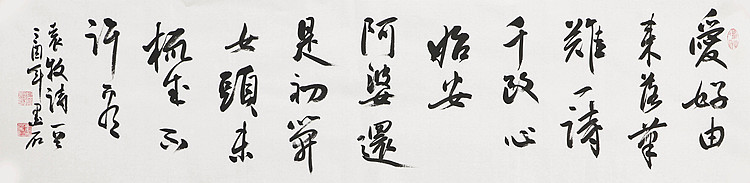 愛好由
來落筆
難一詩
千改心
始安
阿婆還
是初笄
女頭未
梳成不
許看
袁枚詩一首
酉年 石